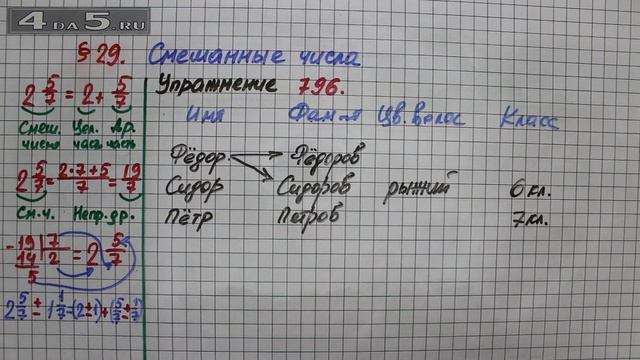 4DA5.RU
§ 29. Смешанные числа
Упражнение 796.
Имя Фам-я Цв. волос Класс
Фёдор. Фёдоров
Сидор Сидоров рыжий 6 кл.
Пётр Петров 7 кл.
2 5/7 = 2 + 5/7
Смеш. число Цел. часть Др. часть
2 5/7 = 2·7+5/7 = 19/7
См.ч. Непр. др.
- 19 | 7
14 | 2 = 2 5/7
5
2 5/7 ± 1 1/7 = (2 ± 1) + (5/7 ± 1/7)